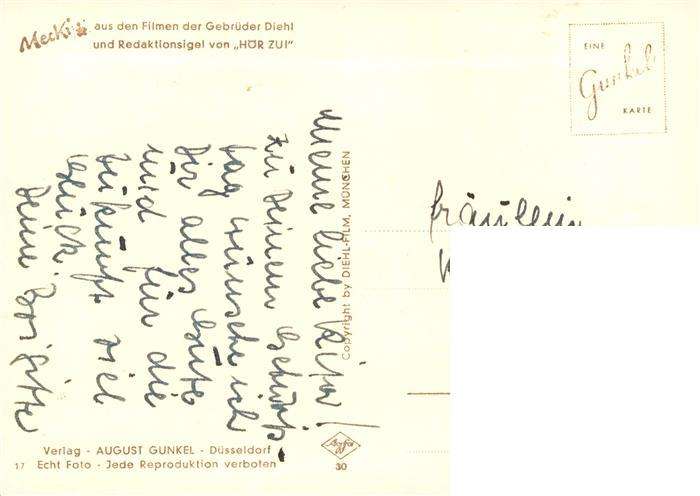 Mecki aus den Filmen der Gebrüder Diehl
und Redaktionsigel von „HÖR ZU!"
EINE
Gunkel
KARTE
Meine liebe Rita!
zu Deinem Geburts-
tag wünsche ich
Dir alles Gute
und für die
Zukunft viel
Glück.
Deine Brigitte
Copyright by DIEHL-FILM, MÜNCHEN
Fräulein
Verlag - AUGUST GUNKEL - Düsseldorf
17 Echt Foto - Jede Reproduktion verboten
Agfa
30